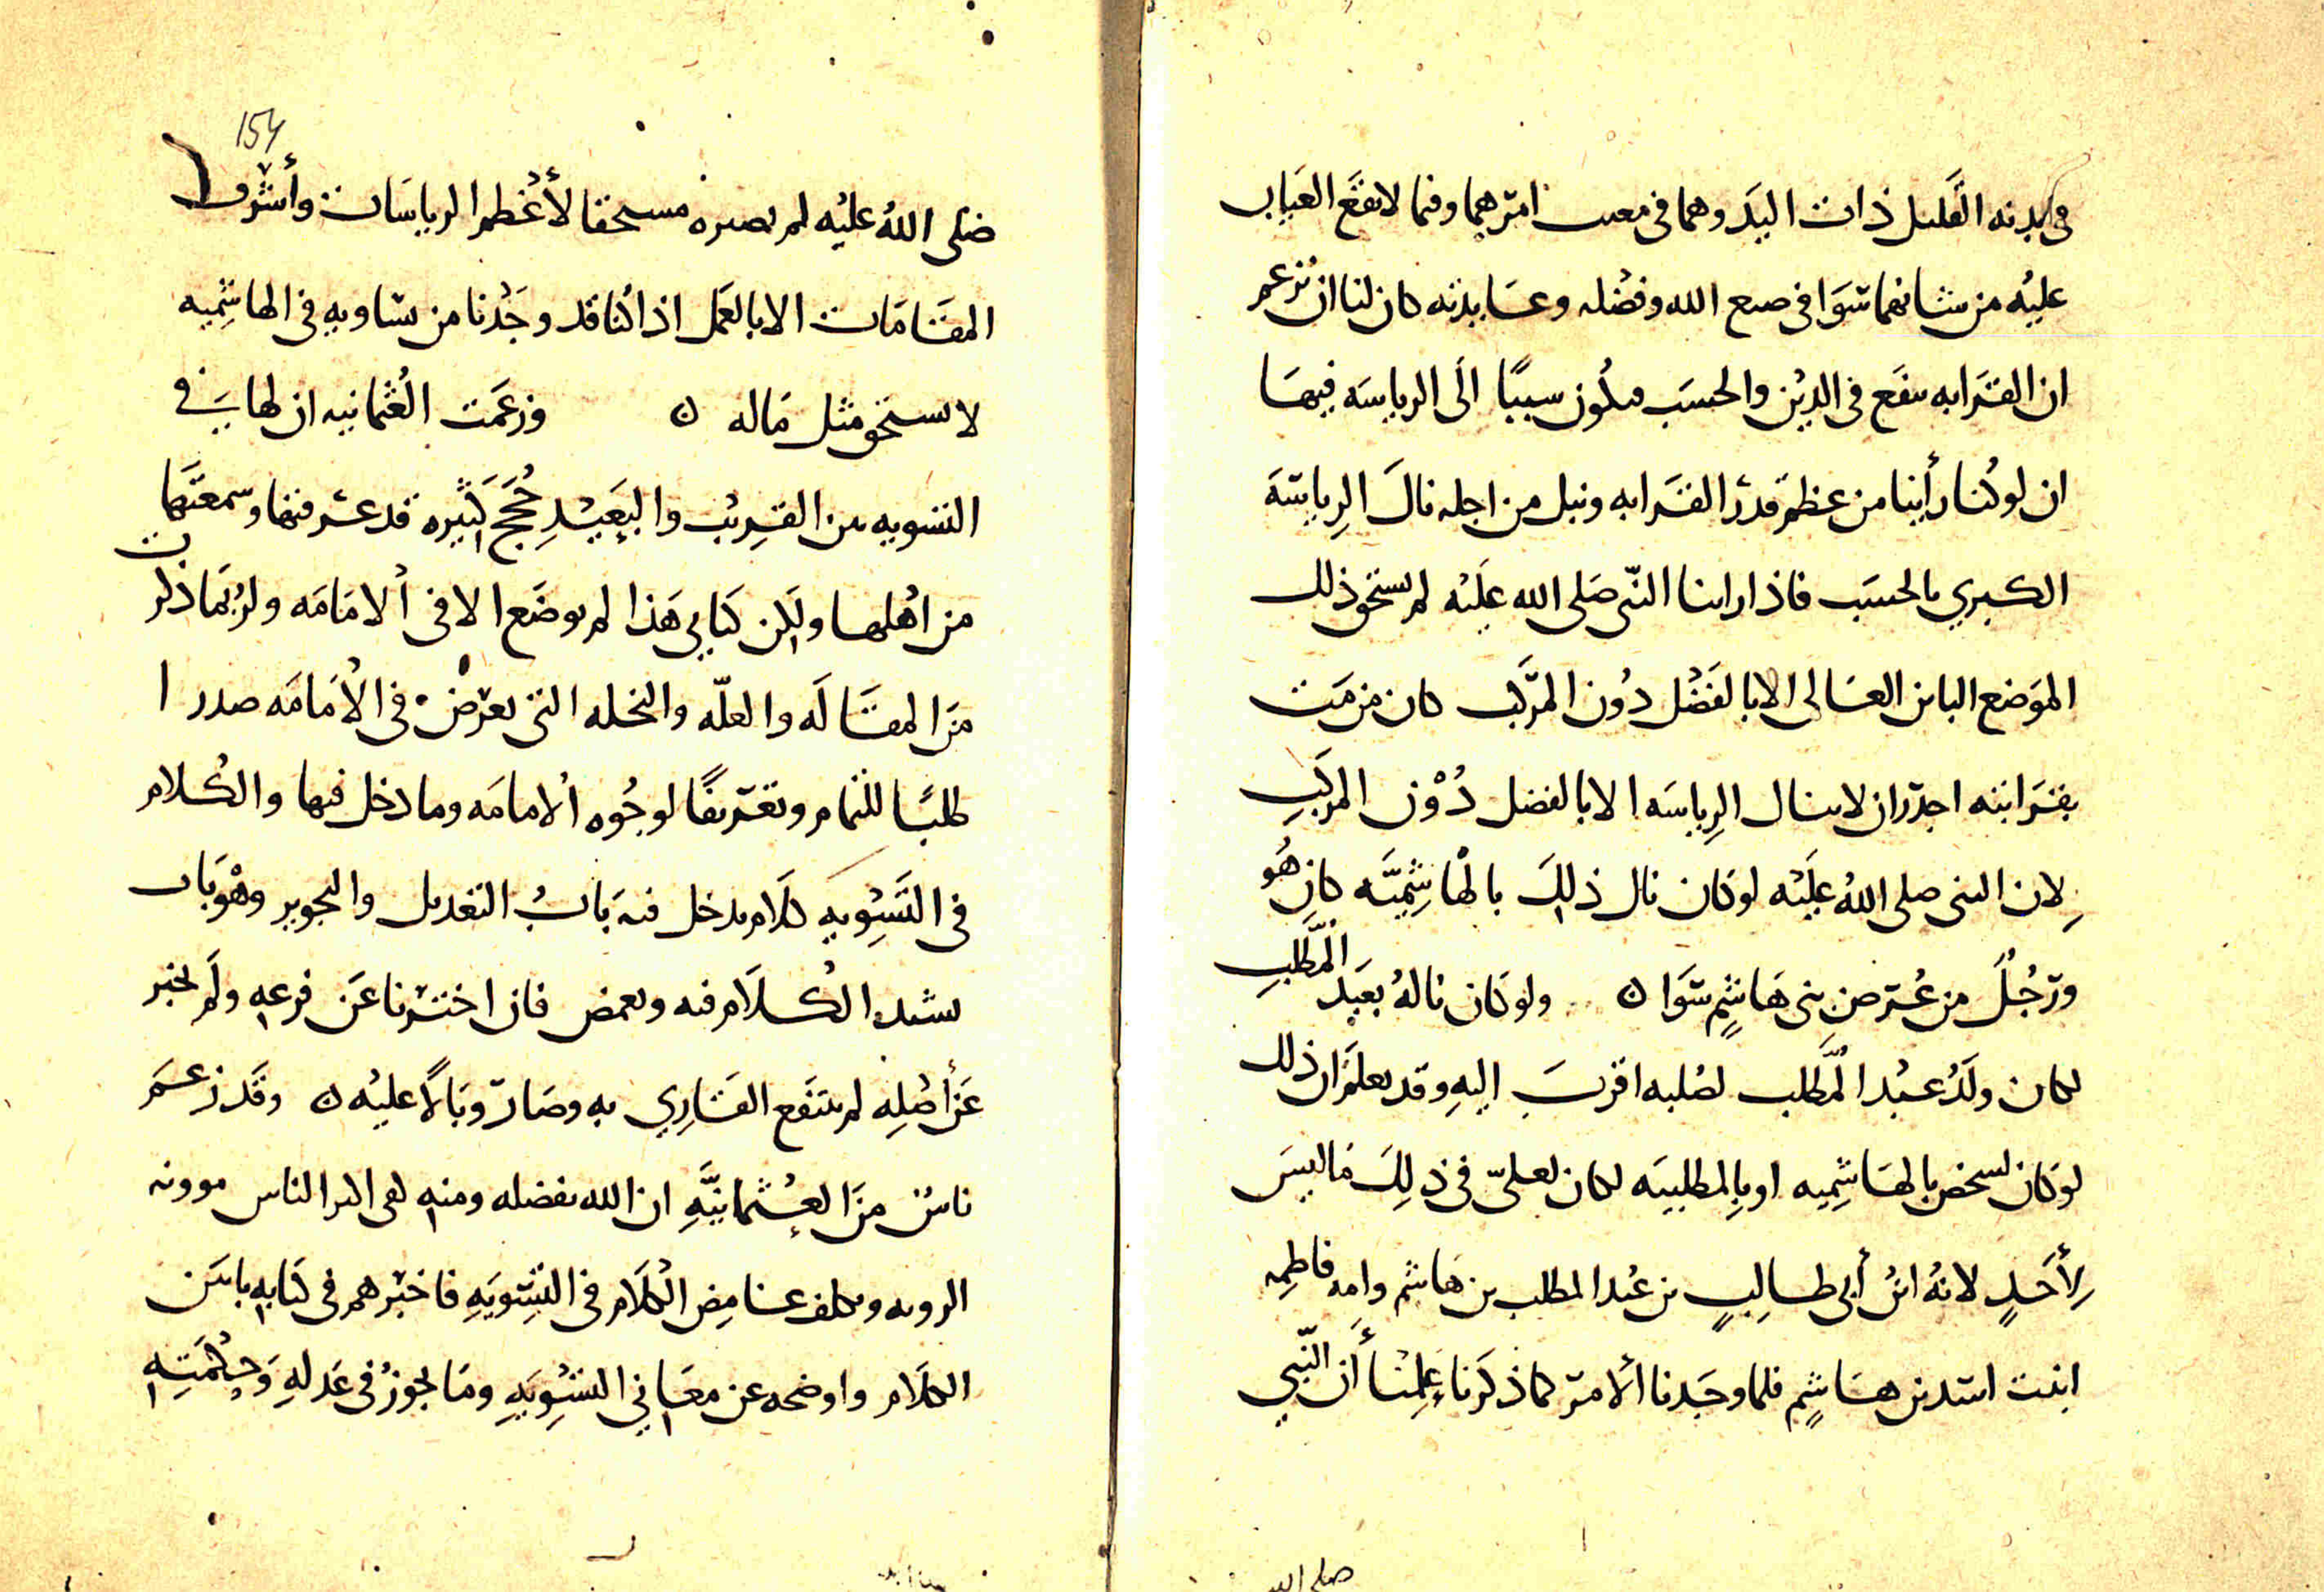 في بدنه القليل ذات اليد وهما في مغيب امرهما وفيما لا يقع العيان
عليه من شانهما سوا في صنع الله وفضله وعسا بدنه كان لنا ان نزعم
ان القرابه تنفع في الدين والحسب فيكون سببًا الى الرياسه فيهما
ان لو كنا رأينا من عظم قدر القرابه ونبل من اجله نال الرياسة
الكبرى بالحسب فاذا راينا النبي صلى الله عليه لم يستحق ذلك
الموضع الباين العالى الا بالفضل دون المركب كان من مت
بقرابته اجدر ان لا ينال الرياسه الا بالفضل دون المركب
لان النبي صلى الله عليه لو كان نال ذلك بالهاشميّه كان هو
ورجل من عرض بني هاشم سوا ن ولو كان ناله بعبد المطلب
لكان ولد عبد المطلب لصلبه اقرب اليه وقد يعلم ان ذلك
لو كان يستحق بالهاشميه او بالمطلبيه لكان لعلي في ذلك ما ليس
لأحدٍ لانه ابن أبي طالب بن عبد المطلب بن هاشم وامه فاطمه
ابنت اسد بن هاشم فلما وجدنا الأمر كما ذكرنا علمنا أن النبي
154
صلى الله عليه لم يصيره مستحقا لأعظم الرياسات وأشرف
المقامات الا بالعمل اذ كنا قد وجدنا من يساويه في الهاشميه
لا يستحق مثل ماله ن وزعمت العثمانيه ان لها في
التسويه بين القريب والبعيد حجج كثيره قد عرفتها وسمعتها
من اهلها ولكن كتابي هذا لم يوضع الا في الامامه ولربما ذكرت
من المقاله والعلّه والنحله التي تعرض في الامامه صدرا
طلبًا للتمام وتعريفًا لوجوه الامامه وما دخل فيها والكلام
في التسويه كلام يدخل فيه باب التعديل والتجوير وهو باب
يشتد الكلام فيه ويغمض فان اخبرنا عن فرعه ولم نخبر
عن أصله لم ينتفع القاري به وصار وبالًا عليه ن وقد زعم
ناس من العثمانيّه ان الله بفضله ومنه كفى اكثر الناس موونه
الرويه وتكلف غامض الكلام في التسويه فاخبرهم في كتابه بابين
الكلام واوضحه عن معاني التسويه وما يجوز في عدله وحكمته
صلى الله